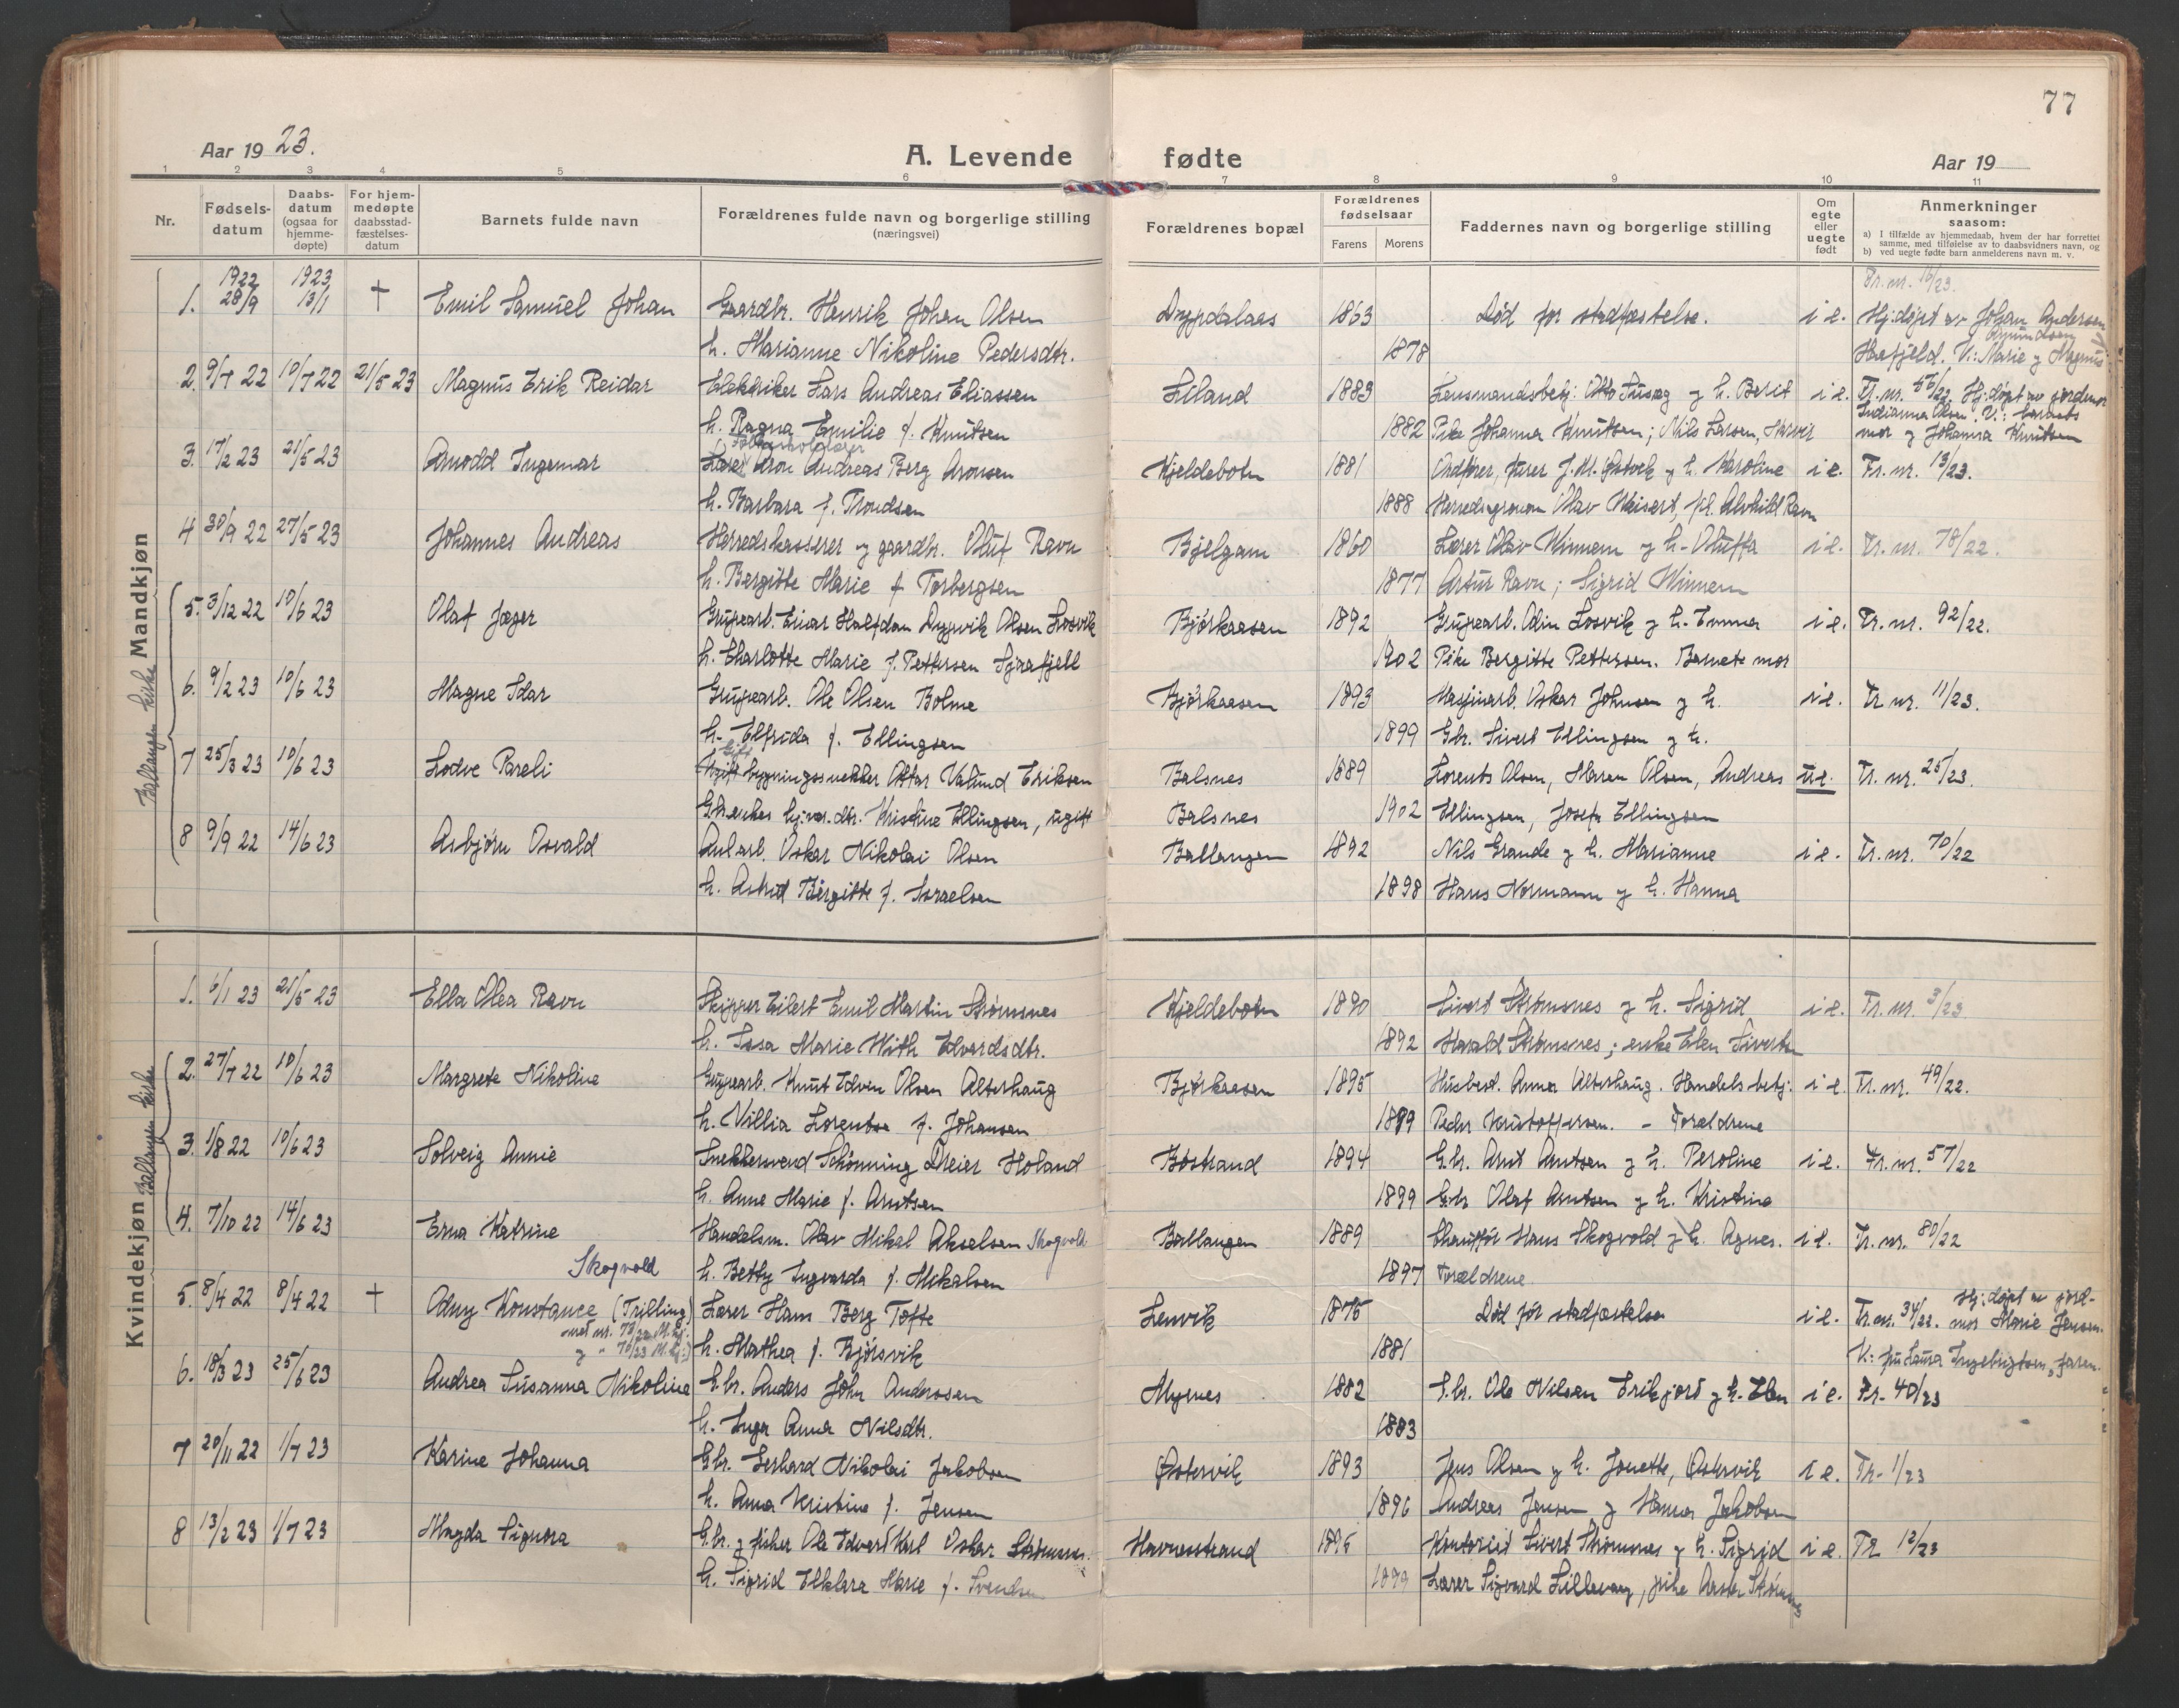 77
Aar 19 23.
A. Levende fødte
Aar 19
1 2 3 4 5 6 7 8 9 10 11
Nr.
Fødsels-datum
Daabs-datum (ogsaa for hjemme-døpte)
For hjem-medøpte daabsstad-fæstelses-datum
Barnets fulde navn
Forældrenes fulde navn og borgerlige stilling (næringsvei)
Forældrenes bopæl
Forældrenes fødselsaar
Farens
Morens
Faddernes navn og borgerlige stilling
Om egte eller uegte født
Anmerkninger saasom:
a) I tilfælde av hjemmedaab, hvem der har forrettet samme, med tilføielse av to daabsvidners navn, og
b) ved uegte fødte barn anmelderens navn m. v.
Mandkjøn
Ballangen kirke
1. 1922 28/9 1923 13/1 † Emil Samuel Johan Gaardbr. Henrik Johan Olsen Dypdalaas 1863 Død før stadfæstelse. i e. Fr. nr. 16/23. Hj:døpt av Johan Andersen
h. Marianne Nikoline Pedersdtr. 1878 Haafjeld. V.: Marie og Magnus
2. 9/7 22 10/7 22 21/5 23 Magnus Erik Reidar Elektriker Lars Andreas Eliassen Liland 1883 Lensmandsbetj: Otto Susæg og h. Berit i e. Fr. nr. 56/22. Hj:døpt av jordmor
h. Ragna Emilie f. Knutsen 1882 Pike Johanna Knutsen; Nils Larsen, Narvik Indianna Olsen V.: barnets mor og Johanna Knutsen
3. 17/2 23 21/5 23 Arnodd Ingemar Lærer Aron Andreas Berg Aronsen Kjeldebotn 1881 i e. Fr. nr. 13/23.
h. Barbara f. Trondsen 1888 Herredsagronom Olav Weisert, frk. Alvhild Ravn
4 30/9 22 27/5 23 Johannes Andreas Herredskasserer og gaardbr. Oluf Ravn Bjelgam 1860 Lærer Olav Winnem og h. Oluffa i e. Fr. nr. 78/22.
h. Bergitte Marie f Torbergsen 1877 Artur Ravn; Sigrid Winnem
5. 3/12 22 10/6 23 Olaf Jæger Grubearb. Einar Halfdan Dypvik Olsen Losvik Bjørkaasen 1892 Grubearb. Odin Losvik og h. Emma i e. Fr. nr. 92/22.
h. Charlotte Marie f. Pettersen Sjaafjell 1902 Pike Bergitte Pettersen. Barnets mor
6. 9/2 23 10/6 23 Magne Idar Grubearb. Ole Olsen Bolme Bjørkaasen 1893 Maskinarb. Oskar Johnsen og h. i e. Fr. nr. 11/23.
h. Elfrida f. Ellingsen 1899 Gbr. Sivert Ellingsen og h.
7 25/3 23 10/6 23 Lodve Pareli Gift bygningssnekker Ottar Valund Eriksen Balsnes 1889 Lorents Olsen, Maren Olsen, Andreas u e. Fr. nr. 25/23.
hj:vær. dtr. Kristine Ellingsen, ugift Balsnes 1902 Ellingsen, Josefa Ellingsen
8 9/9 22 14/6 23 Asbjørn Osvald Anl.arb. Oskar Nikolai Olsen Ballangen 1892 Nils Grande og h. Marianne i e. Fr. nr. 70/22
h. Astrid Birgitte f. Israelsen 1898 Hans Normann og h. Hanna
Kvindekjøn
Ballangen kirke
1. 6/1 23 21/5 23 Ella Olea Ravn Skipper Eilert Emil Martin Strømsnes Kjeldebotn 1890 Sivert Strømsnes og h. Sigrid i e. Fr. nr. 3/23
h. Issa Marie With Edvardsdtr. 1892 Harald Strømsnes; enke Elen Sivertsen
2. 27/7 22 10/6 23 Margrete Nikoline Grubearb. Knut Edvin Olsen Alterhaug Bjørkaasen 1895 Husbest. Anna Alterhaug. Handelsbetj: i e. Fr. nr. 49/22.
h. Villia Lorentse f. Johansen 1899 Peder Kristoffersen. - Forældrene
3. 1/8 22 10/6 23 Solveig Annie Snekkersvend Schønning Dreier Holand Bøstrand 1894 Gbr. Arnt Arntsen og h. Peroline i e. Fr. nr. 57/22
h. Anne Marie f. Arntsen 1899 Gbr Olaf Arntsen og h. Kristine
4. 7/10 22 14/6 23 Erna Katrine Skogvold Handelsm. Olav Mikal Akselsen Skogvold Ballangen 1889 Chauffør Hans Skogvold og h. Agnes. i e. Fr. nr. 80/22
h. Betty Ingvarda f. Mikalsen 1897 Forældrene
5. 8/4 22 8/4 22 † Odny Konstance (Trilling Lærer Hans Berg Tofte Lenvik 1875 Død før stadfæstelse i e. Fr. nr. 34/22. Hj:døpt av jord-mor Marie Jensen.
h. Mathea f. Bjørsvik 1881 V.: fru Laura Ingebrigtsen, faren.
6. 18/3 23 25/6 23 Andrea Susanna Nikoline G.br. Anders John Andersen Myrnes 1882 G.br. Ole Nilsen Erikjord og h. Elen i e. Fr. 40/23
h. Inga Anna Nilsdtr. 1883
7 20/11 22 1/7 23 Karine Johanna Gbr. Gerhard Nikolai Jakobsen Østervik 1893 Jens Olsen og h. Jonette, Østervik i e. Fr. 1/23
h. Anna Kristine f. Jensen 1896 Andreas Jensen og Hanna Jakobsen
8 13/2 23 1/7 23 Magda Signora G.br. og fisker Ole Edvard Karl Oskar Strømsnes. Havnesstrand 1895 Kontorist Sivert Strømsnes og h. Sigrid i e. Fr 12/23
h. Sigrid Elklara Marie f. Svendsen 1899 Lærer Sigvard Lillevang, pike Aasta Strømsnes